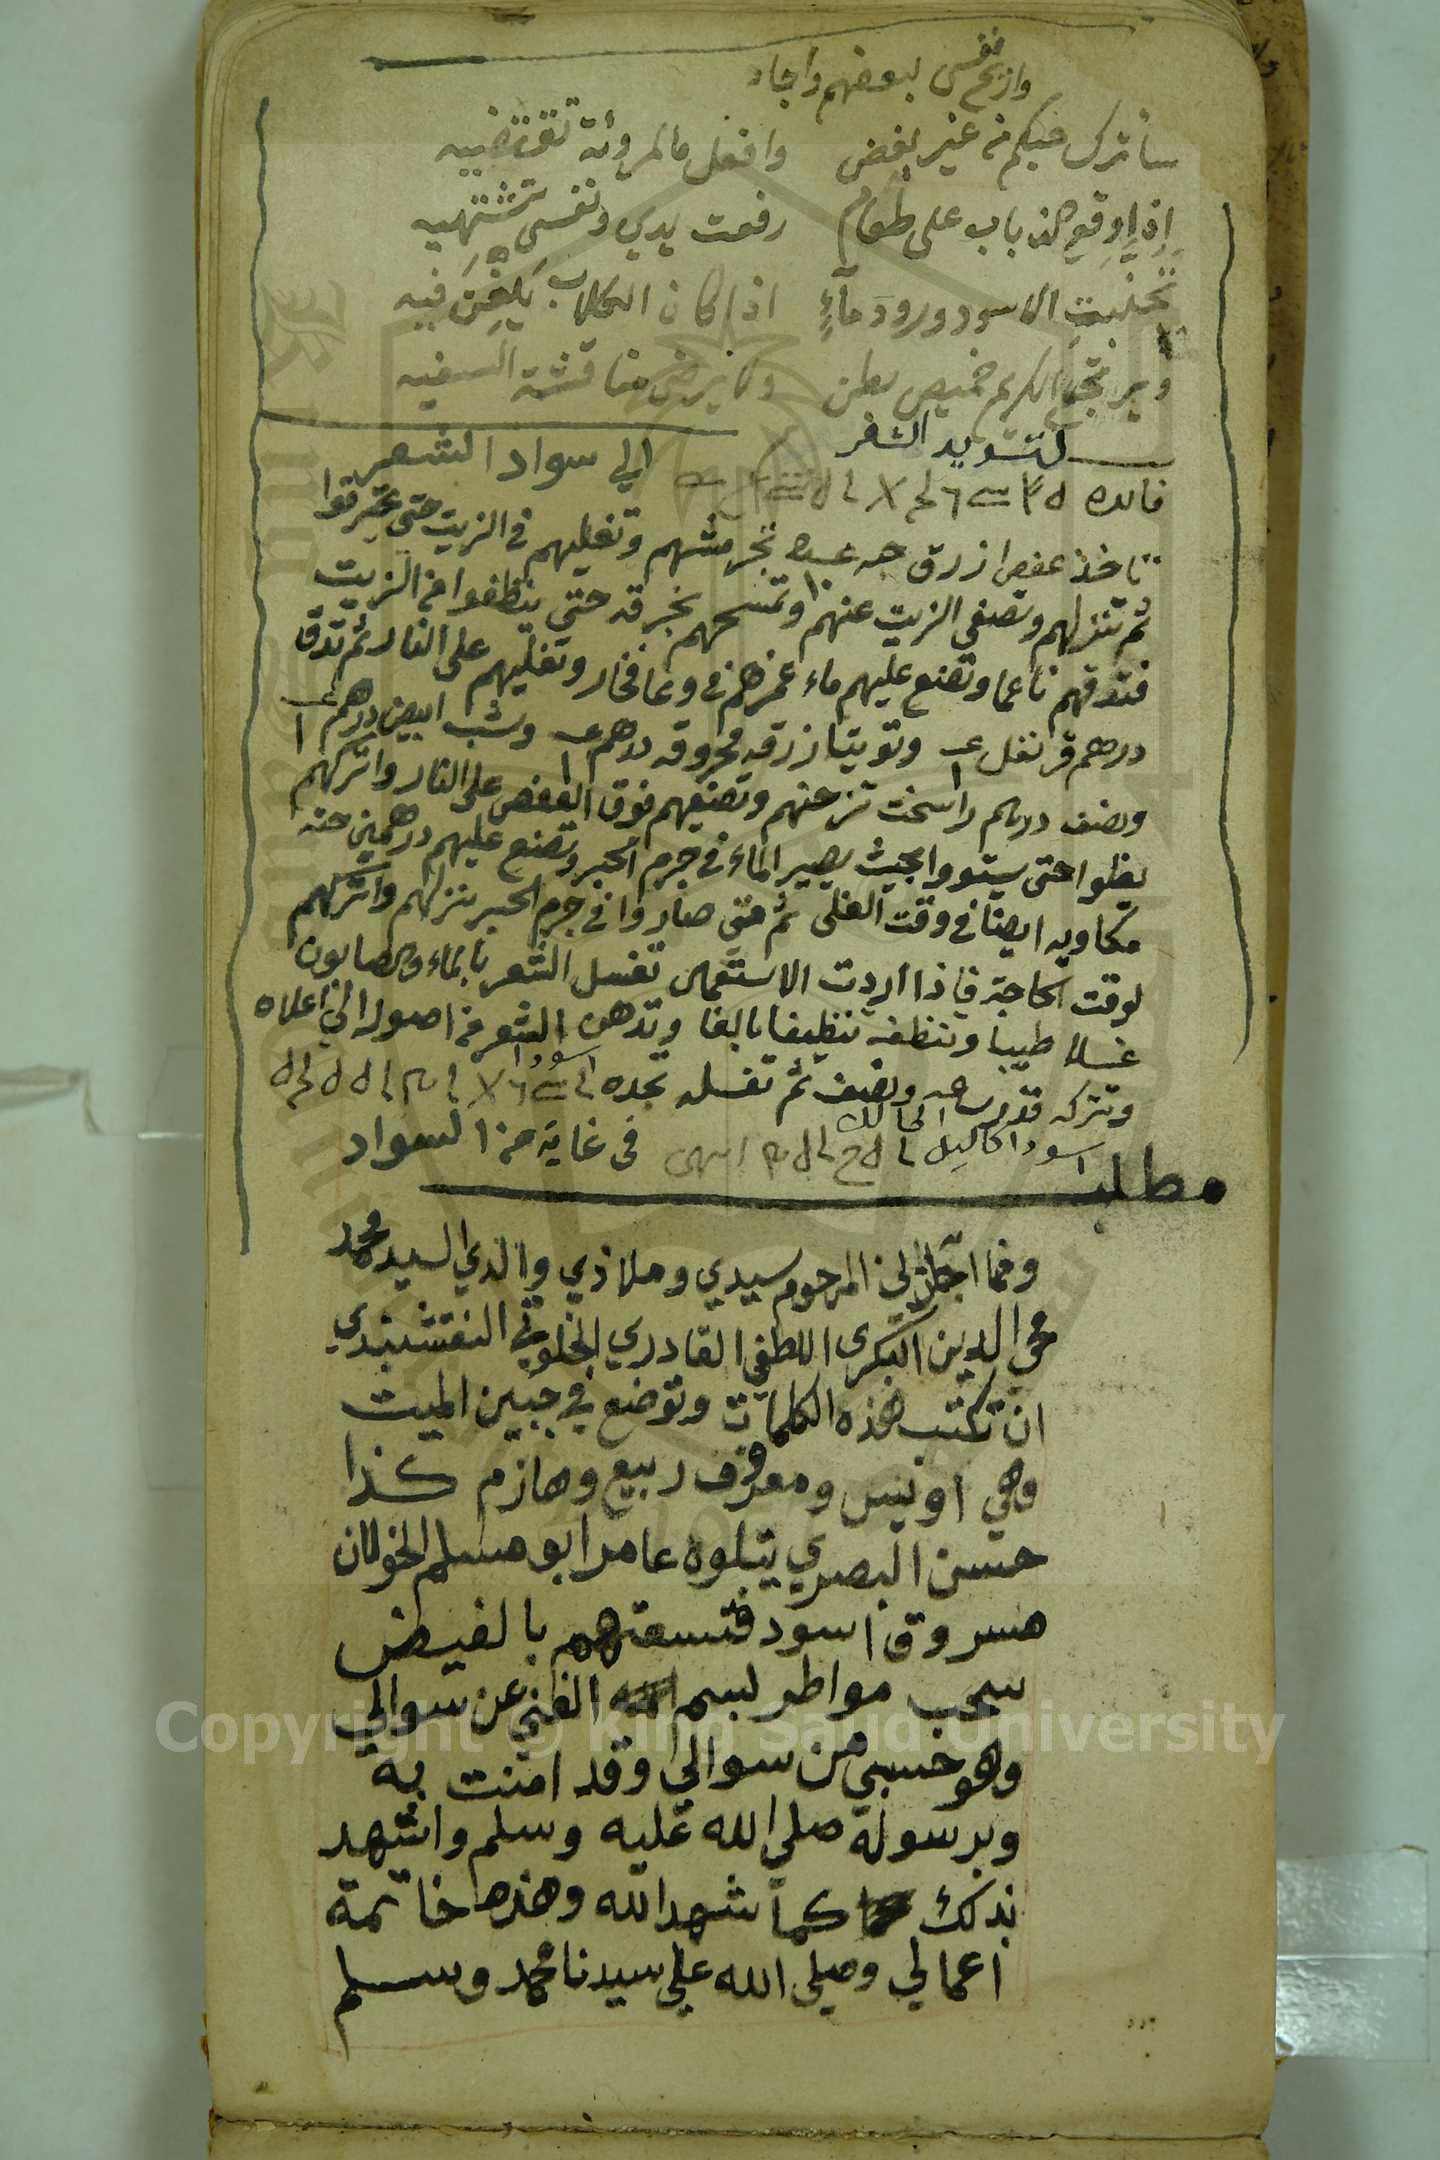 لبعضهم واجاد
سأترك حبكم من غير بغض وافعل ما المروئة تقتضيه
إذا وقع الذباب على طعام رفعت يدي ونفسي تشتهيه
تجنبت الاسود ورود مآءٍ اذا كان الكلاب يلغن فيه
ويرتجع الكريم خميص بطن ولا يرضى مناقشة السفيه
لتسويد الشعر
فائده الي سواد الشعر
تاخذ عفص ازرق حبه تجرمشهم وتغليهم في الزيت حتى يحترقوا
ثم تنزلهم وتصفي الزيت عنهم وتمسحهم بخرقه حتى ينظفوا من الزيت
فتدقهم ناعما وتضع عليهم ماء غمرهم في وعا فخار وتغليهم على النار ثم تدق
درهم قرنفل وتوتيا زرقه محروقه درهم وشب ابيض درهم
ونصف درهم راسخت تزحنهم وتضعهم فوق العفص على النار واتركهم
يغلوا حتى يستووا بحيث يصير الماء في جرم الحبر وتضع عليهم درهمين حنه
مكاويه ايضا في وقت الغلى ثم متى صاروا في جرم الحبر نزلهم واتركهم
لوقت الحاجة فاذا اردت الاستعمال تغسل الشعر بالماء والصابون
غسلا طيبا وتنظفه تنظيفا بالغا وتدهن الشعر من اصوله الي اعلاه
وتتركه قدر ساعه ونصف ثم تغسله تجده اسودا
اسودا كالليل الحالك انتهى في غاية من السواد
مطلب
ومما اجازني المرحوم سيدي وملاذي والدي السيد محمد
محي الدين البكرى اللطفي القادري الخلوتي النقشبندي
ان تكتب هذه الكلمات وتوضع في جبين الميت
وهي اويس ومعروف ربيع وهازم كذا
حسن البصري يتلوه عامر ابو مسلم الخولان
مسروق اسود فتسقهم بالفيض
سحب مواطر بسم الله الغني عن سوالي
وهو حسبي من سوالي وقد امنت به
وبرسوله صلي الله عليه وسلم واشهد
بذلك كما شهد الله وهذه خاتمة
اعمالي وصلى الله علي سيدنا محمد وسلم
Copyright © King Saud University